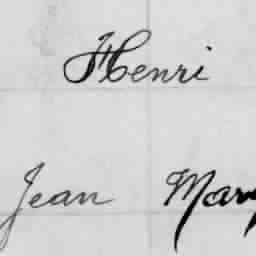 Henri
Jean Mary